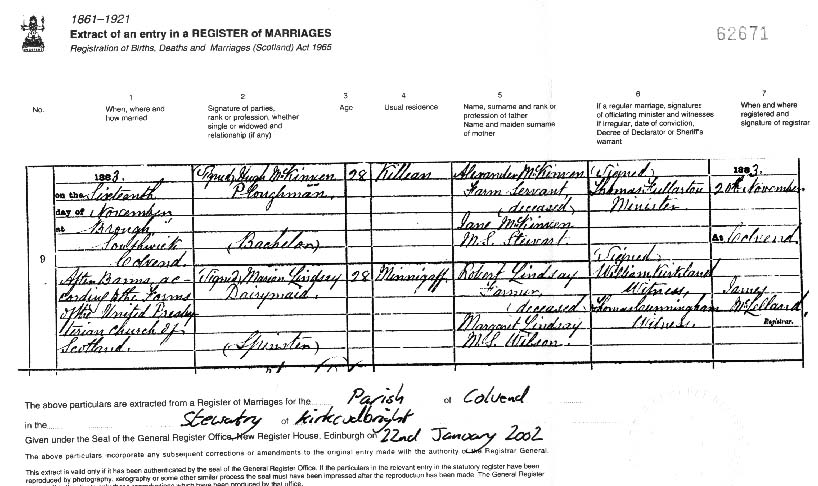 1861–1921
Extract of an entry in a REGISTER of MARRIAGES
Registration of Births, Deaths and Marriages (Scotland) Act 1965
62671
1
2
3
4
5
6
7
No.
When, where and
how married
Signature of parties,
rank or profession, whether
single or widowed and
relationship (if any)
Age
Usual residence
Name, surname and rank or
profession of father
Name and maiden surname
of mother
If a regular marriage, signatures
of officiating minister and witnesses
If irregular, date of conviction,
Decree of Declarator or Sheriff's
warrant
When and where
registered and
signature of registrar
9
1883.
on the Sixteenth
day of November
at Brough,
Southwick
Colvend
After Banns, ac-
cording to the Forms
of the United Presby-
terian Church of
Scotland.
(Signed) Hugh McKinnon
Ploughman,
(Bachelor)
28
Killean
Alexander McKinnon
Farm Servant
(deceased)
Jane McKinnon
M.S. Stewart.
(Signed)
Thomas Fullarton
Minister
1883.
20th November
At Colvend
(Signed) Marion Lindsay
Dairymaid.
(Spinster)
28
Minnigaff
Robert Lindsay
Farmer,
(deceased)
Margaret Lindsay
M.S. Wilson.
(Signed)
William Kirkland
Witness,
Thomas Cunningham
Witness.
James
McLelland,
Registrar.
The above particulars are extracted from a Register of Marriages for the Parish of Colvend
in the Stewartry of Kirkcudbright
Given under the Seal of the General Register Office, New Register House, Edinburgh on 22nd January 2002
The above particulars incorporate any subsequent corrections or amendments to the original entry made with the authority of the Registrar General.
This extract is valid only if it has been authenticated by the seal of the General Register Office. If the particulars in the relevant entry in the statutory register have been
reproduced by photography, xerography or some other similar process the seal must have been impressed after the reproduction has been made. The General Register